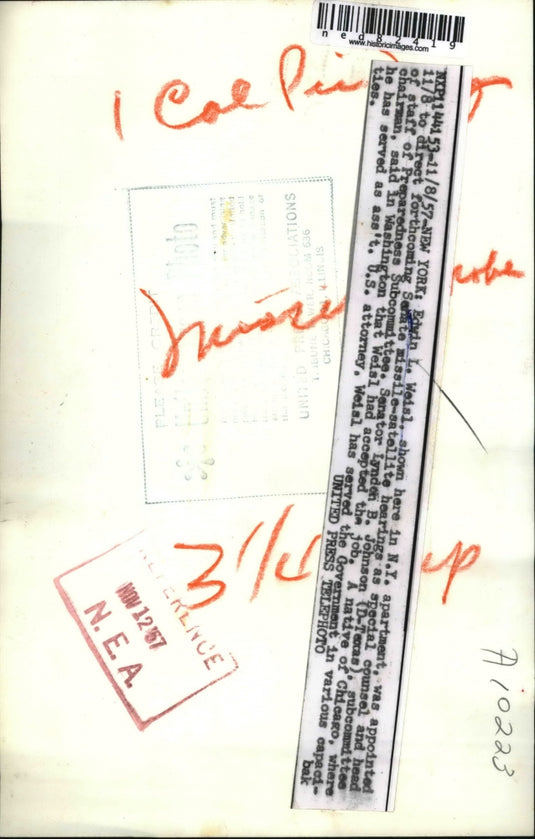 ned82419
www.historicimages.com
1 Col
NXP1144153-11/8/57-NEW YORK: Edwin L. Weisl, shown here in N.Y. apartment, was appointed
11/8 to direct forthcoming Senate missile-satellite hearings as special counsel and head
of staff of Preparedness Subcommittee. Senator Lyndon B. Johnson (D-Texas), subcommittee
chairman, said in Washington that Weisl had accepted the job. A native of Chicago, where
he has served as ass't. U.S. attorney, Weisl has served the Government in various capaci-
ties. bak
UNITED PRESS TELEPHOTO
PLEASE CREDIT
Photo
UNITED PRESS ASSOCIATIONS
ROOM 636
CHICAGO ILLINOIS
3 1/4 up
REFERENCE
NOV 12 '57
N. E. A.
A10223